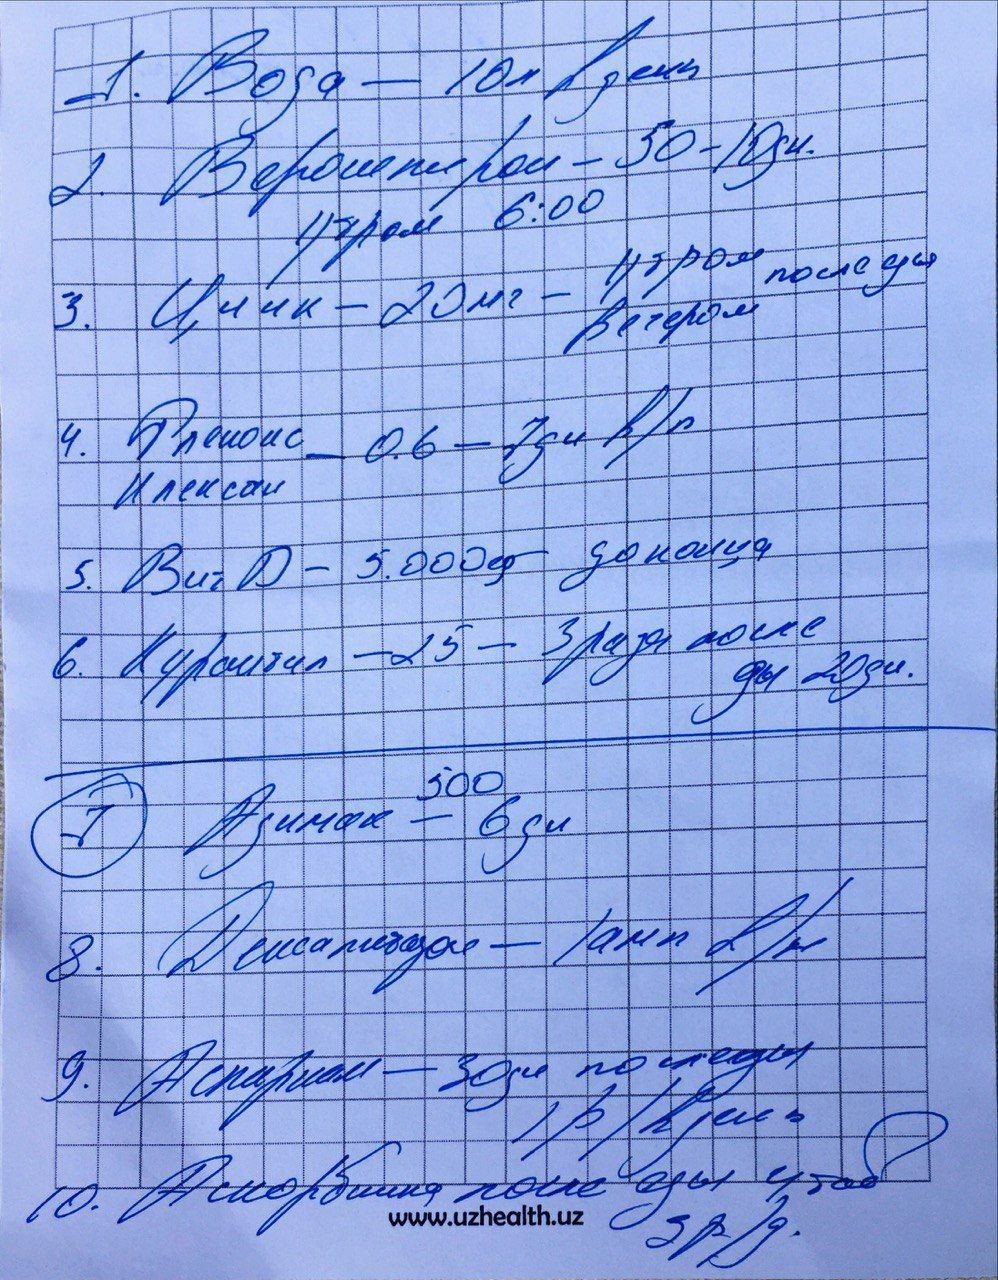 1. Вода — 10л в день
2. Верошпирон – 50 – 10дн.
утром 6:00
3. Цинк – 20мг – утром после еды
вечером
4. Фленокс — 0.6 — 7дн п/к
Клексан
5. Вит Д – 5.000 до конца
6. Курантил – 25 – 3 раза после
еды 20дн.
7 Азимак — 500 6дн
8. Дексаметазон — 1амп в/м
9. Аспирин — 30дн после еды
1р/в день
10. Аскорбинка после еды 4 таб
3р/д.
www.uzhealth.uz